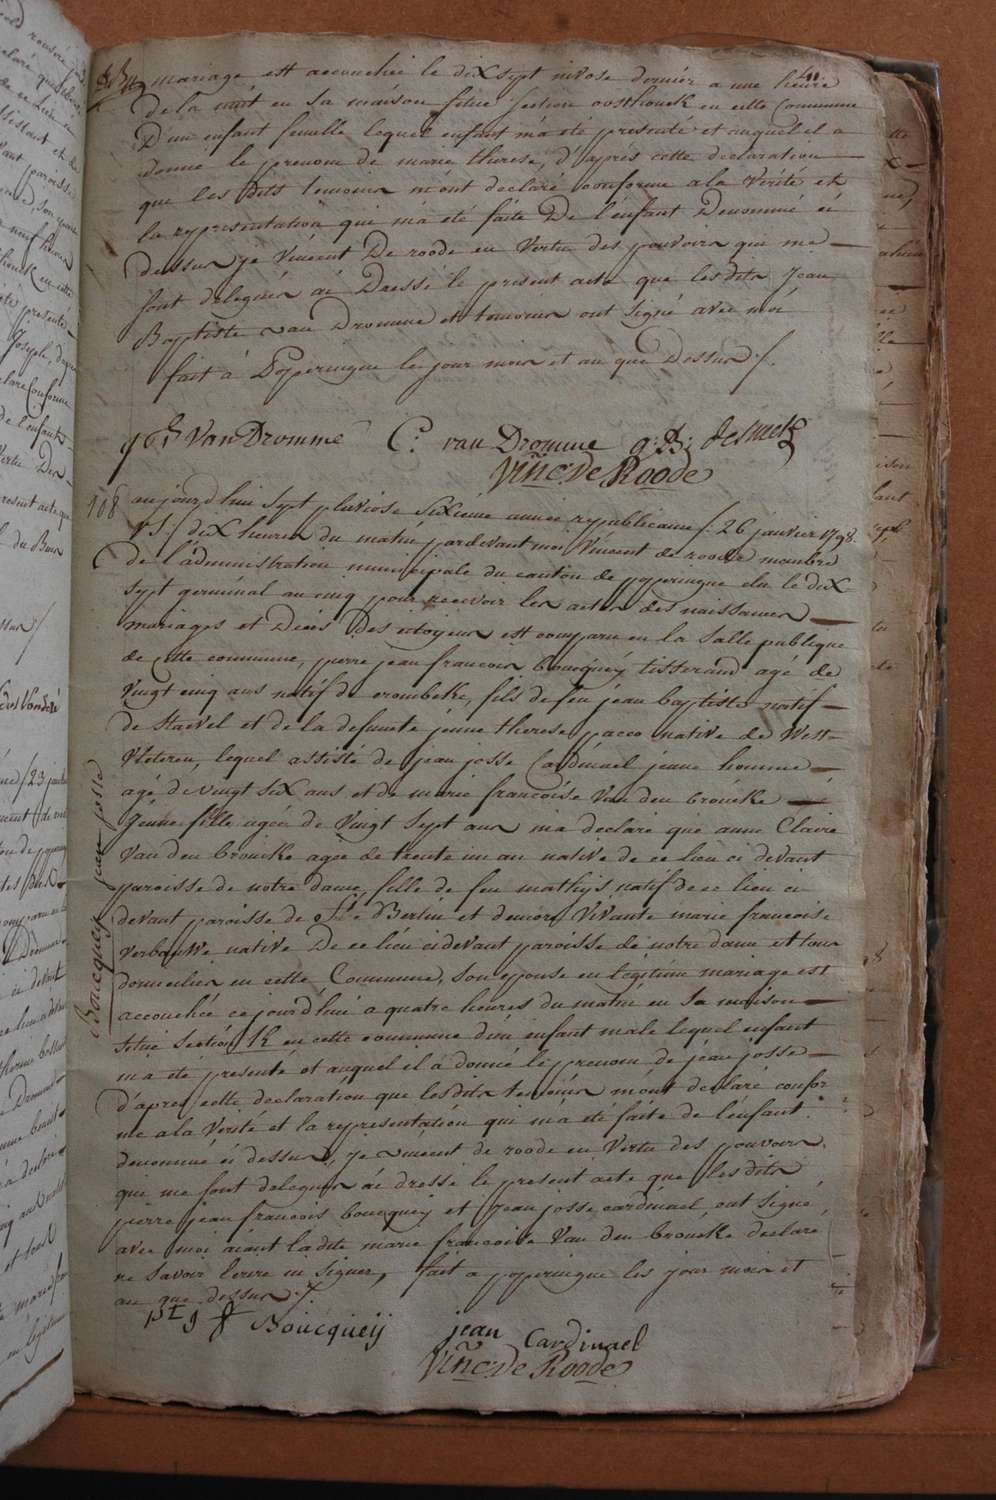 mariage est accouchée le dix sept nivose dernier a une heure
de la nuit en sa maison sitúe section oosthouck en cette commune
D'un enfant femelle lequel enfant m'a été presenté et auquel il a
donné le prenom de marie therese, d'après cette declaration
que les dits temoins m'ont declaré conforme a la verité et
la representation qui m'a été faite De l'enfant Denommé ci
dessus je Vincent De roode en vertu des pouvoirs qui me
sont delegués ai Dressé le present acte que lesdits Jean
Baptiste van Dromme et temoins ont signé avec moi
fait à Poperingue le jour mois et an que Dessus /.
Van Dromme C. van Dromme g: B: desmet
Vinc: De Roode
108 aujourd'hui sept pluviose sixième année republicaine /. 26 janvier 1798.
VS / dix heures du matin pardevant moi Vincent de roode membre
de l'administration municipale du canton de poperingue elu le dix
sept germinal an cinq pour recevoir les actes des naissances
mariages et Décès Des citoyens est comparu en la salle publique
de cette commune, pierre jean francois boucqueÿ tisserand agé de
vingt cinq ans natif de crombeke, fils de feu jean baptiste natif
de Stavel et de la defunte jeune therese pacco native de West
Vleteren, lequel assisté de jean josse Cardinael jeune homme
agé de vingt six ans et de marie françoise Van den broucke
Jeune fille agée de vingt sept ans m'a declaré que anne Claire
Van den broucke agée de trente un an native de ce lieu ci devant
paroisse de notre dame, fille de feu mathijs natif de ce lieu ci
devant paroisse de St Bertin et encore vivante marie francoise
verbauwe native De ce lieu ci devant paroisse de notre dame et tous
domiciliés en cette Commune, son epouse en légitime mariage est
accouchée cejourd'hui a quatre heures du matin en sa maison
sitúe section 12 en cette commune d'un enfant male lequel enfant
m'a été presenté et auquel il a donné le prenom de jean josse
d'apres cette declaration que lesdits temoins m'ont declaré confor
me a la vérité et la representation qui m'a été faite de l'enfant
denommé ci dessus, je vincent de roode en vertu des pouvoirs
qui me sont delegués ai dressé le present acte que lesdits
pierre jean francois boucqueÿ et jean josse cardinael ont signé
avec moi aiant ladite marie francoise Van den broucke declaré
ne savoir ecrire ni signer, fait a poperingue les jour mois et
an que dessus ./.
Boucqueÿ jean josse
Boucqueij jean Cardinael
Vinc: De Roode